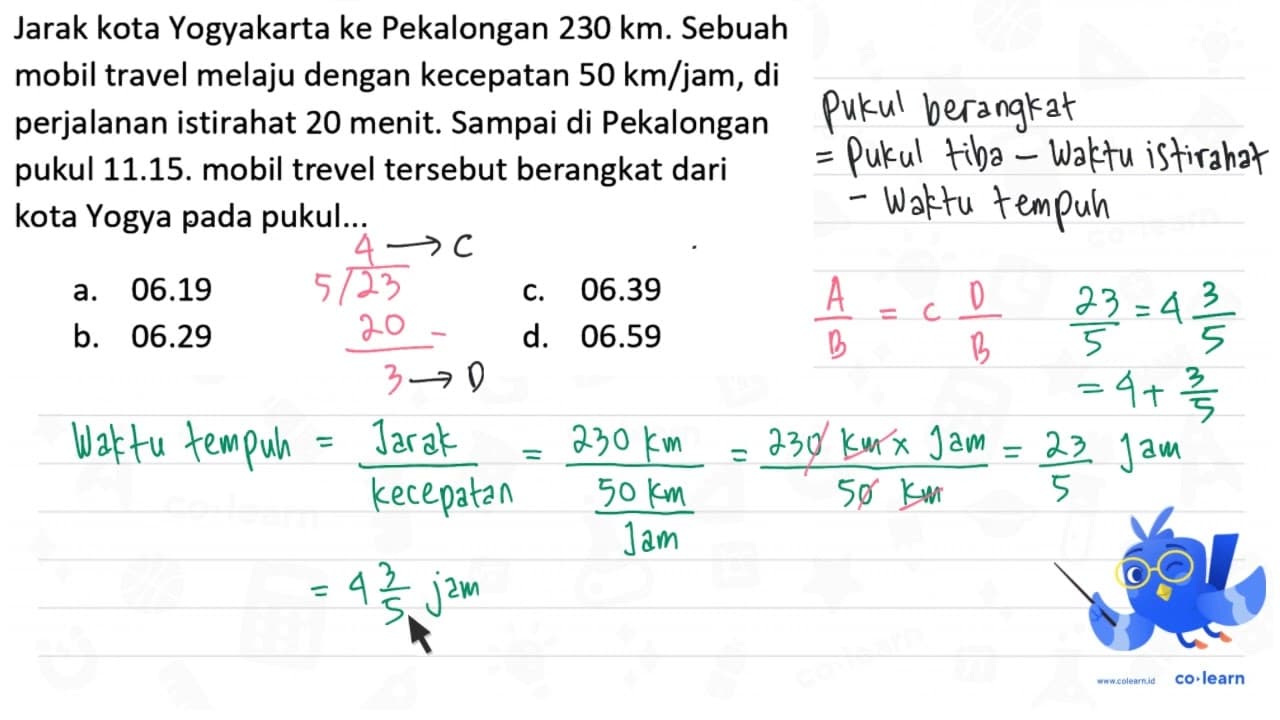 Jarak kota Yogyakarta ke Pekalongan 230 km. Sebuah
mobil travel melaju dengan kecepatan 50 km/jam, di
perjalanan istirahat 20 menit. Sampai di Pekalongan
pukul 11.15. mobil trevel tersebut berangkat dari
kota Yogya pada pukul...
a. 06.19
b. 06.29
c. 06.39
d. 06.59
4 → C
5/23
20 -
3 → D
Pukul berangkat
= Pukul tiba - Waktu istirahat
- Waktu tempuh
A/B = C D/B
23/5 = 4 3/5
= 4 + 3/5
Waktu tempuh = Jarak/kecepatan = 230 km/(50 km/Jam) = 230 km x Jam/50 km = 23/5 Jam
= 4 3/5 jam
www.colearn.id co·learn